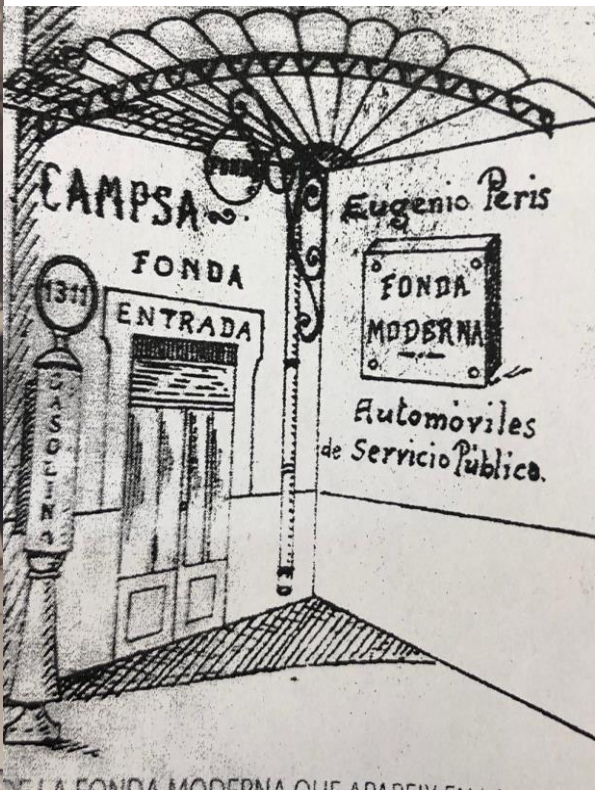 CAMPSA
FONDA
ENTRADA
1311
GASOLINA
FONDA
Eugenio Peris
FONDA
MODERNA
Automóviles
de Servicio Público.
DE LA FONDA MODERNA QUE APAREIX EN